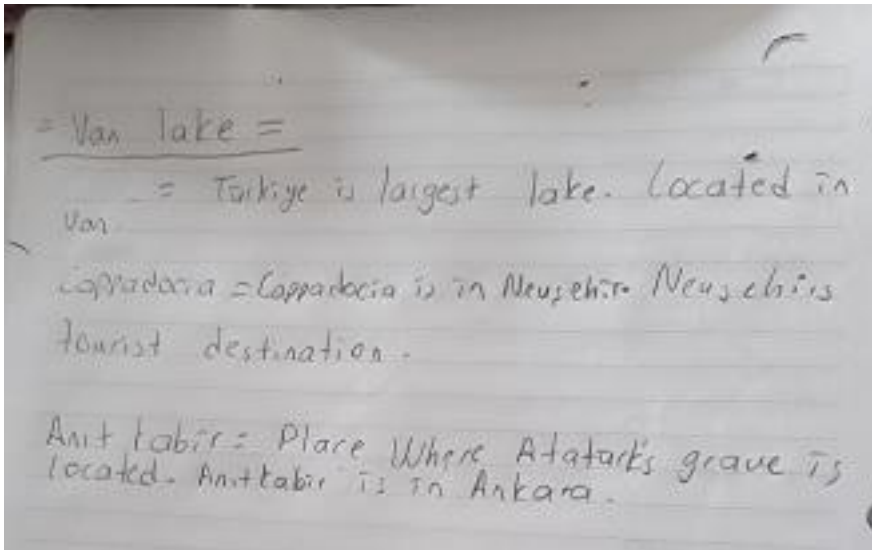 = Van lake =
= Türkiye is largest lake. Located in
Van.
Cappadocia = Cappadocia is in Nevşehir. Nevşehirs
tourist destination.
Anıt kabir = Place Where Atatürk's grave is
located. Anıtkabir is in Ankara.